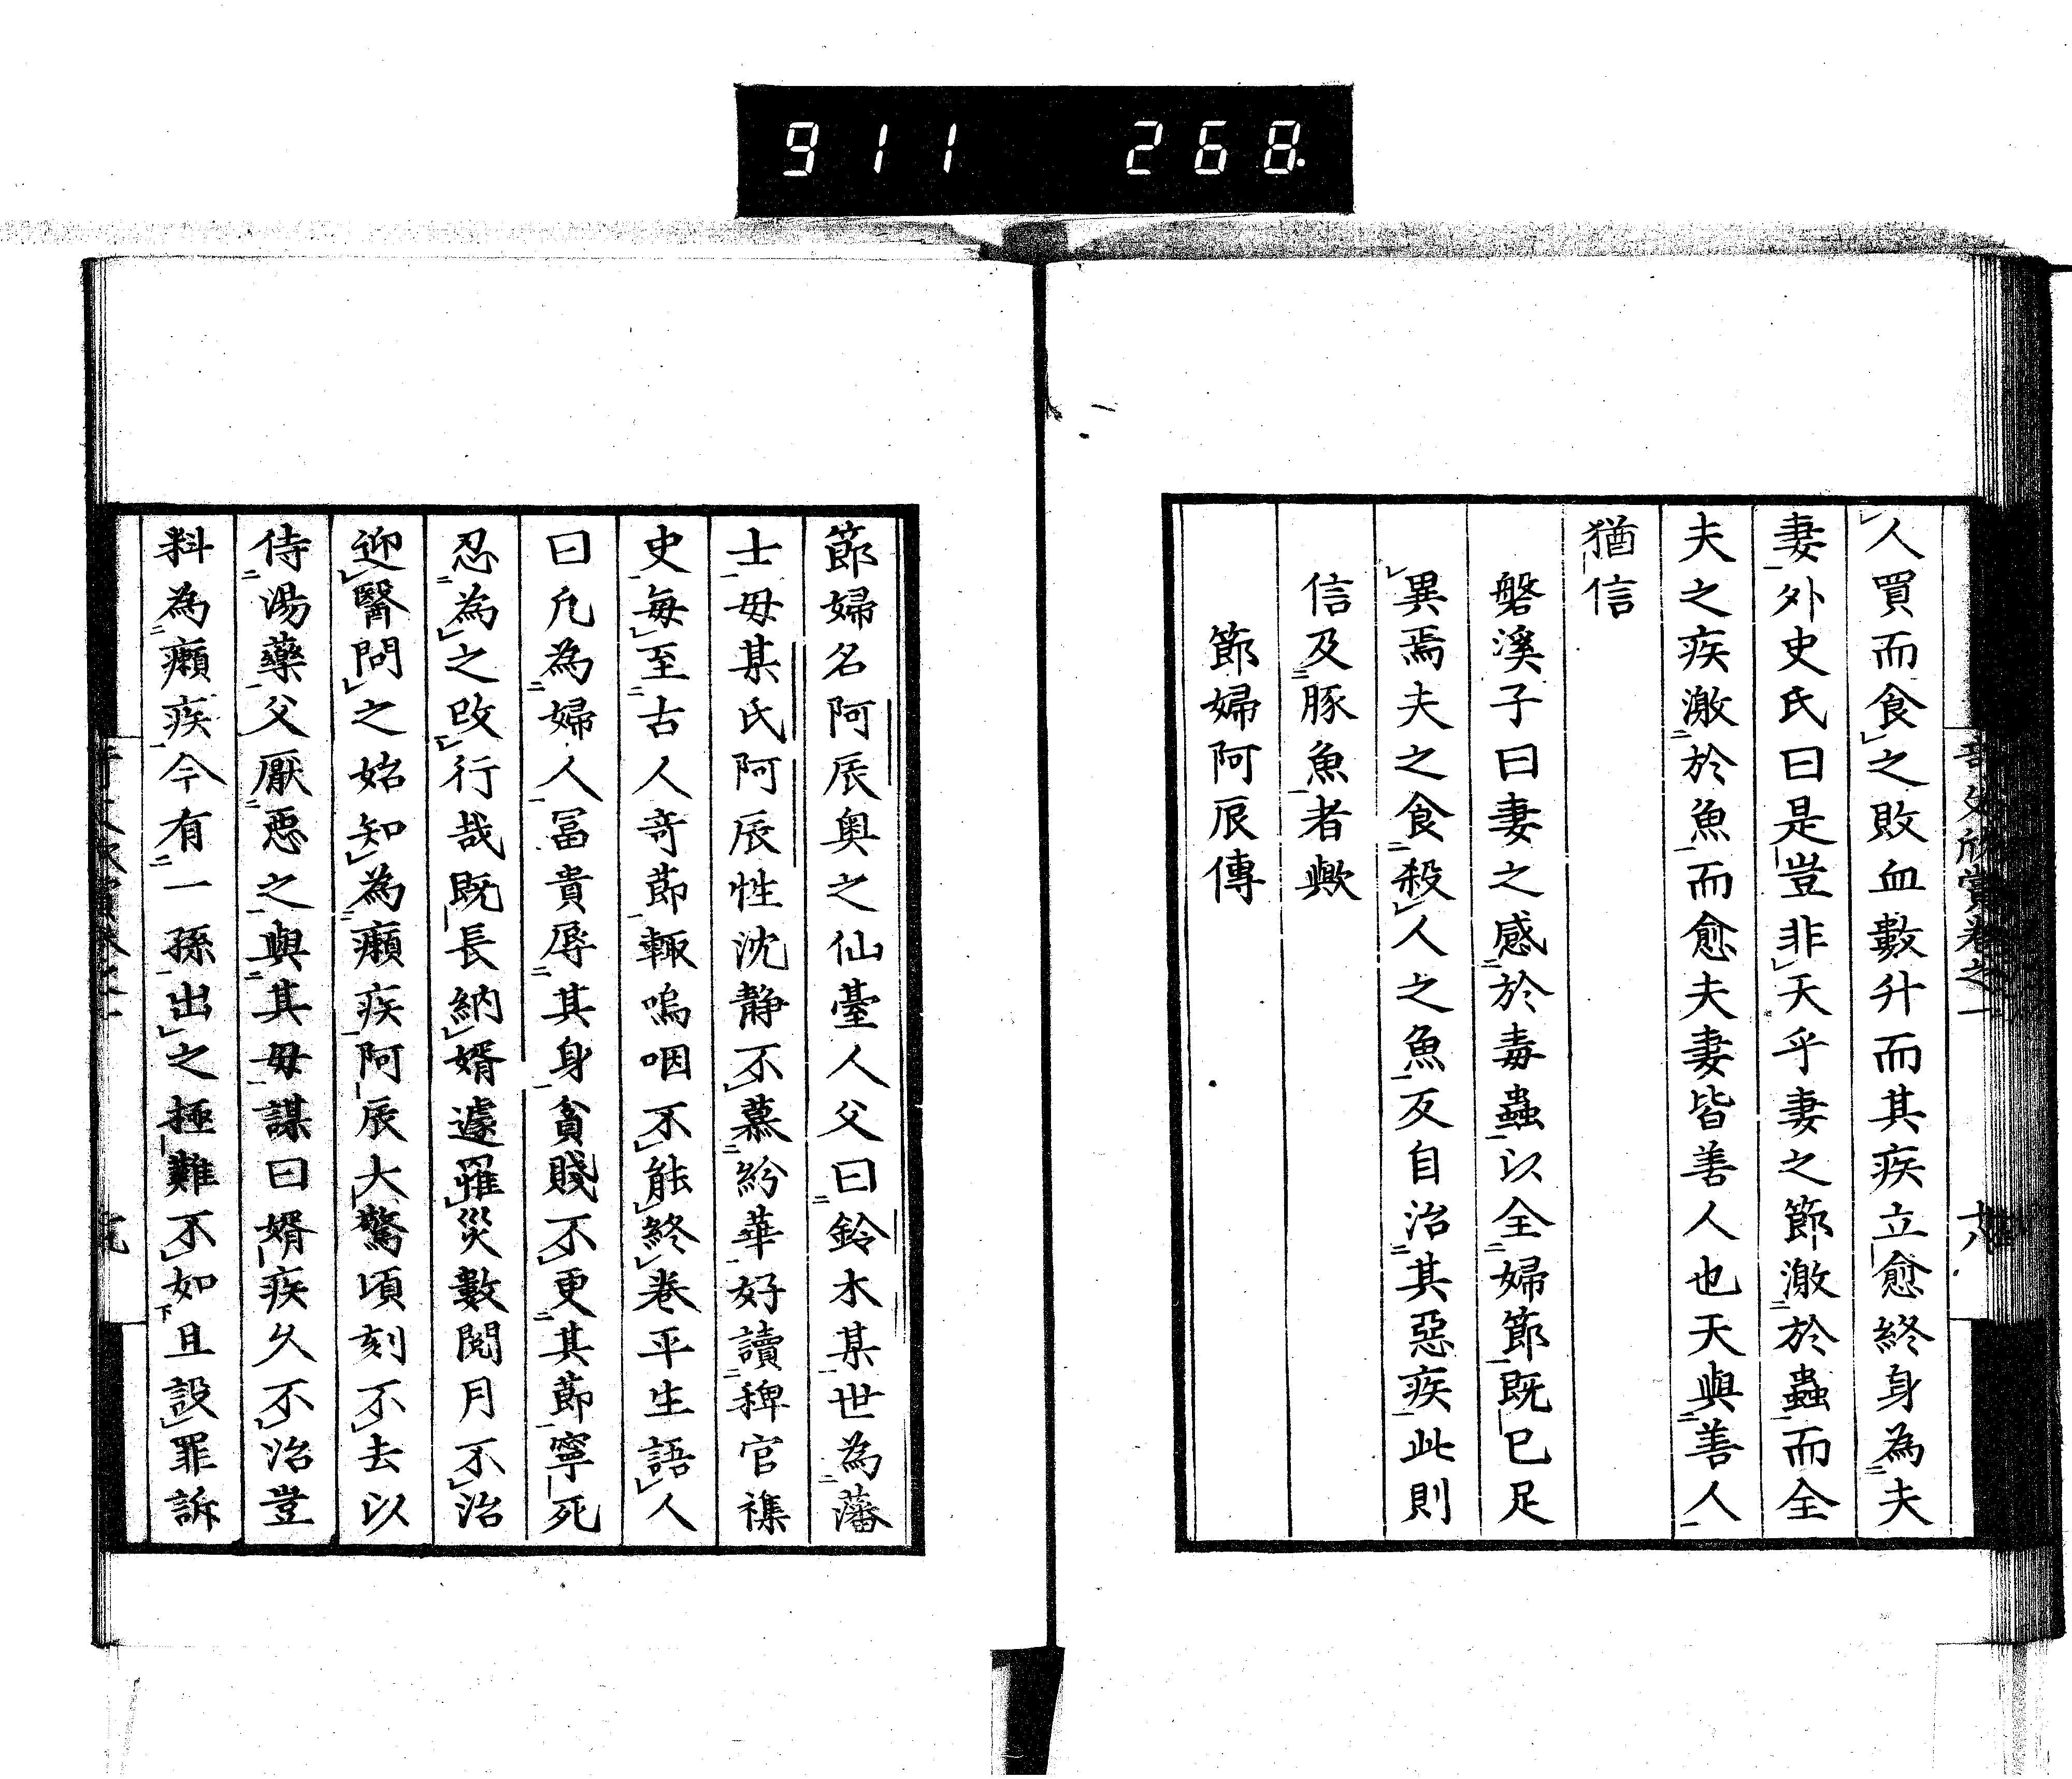 911 268
奇文欣賞卷之一
六
人買而食之敗血數升而其疾立愈終身為夫
妻外史氏曰是豈非天乎妻之節激於蟲而全
夫之疾激於魚而愈夫妻皆善人也天與善人
猶信
磐溪子曰妻之感於毒蟲以全婦節既已足
異焉夫之食殺人之魚反自治其惡疾此則
信及豚魚者歟
節婦阿辰傳
節婦名阿辰奥之仙臺人父曰鈴木某世為藩
士母某氏阿辰性沈静不慕紛華好讀稗官襍
史每至古人奇節輒嗚咽不能終卷平生語人
曰凡為婦人冨貴辱其身貧賤不更其節寧死
忍為之改行哉既長納婿遽罹災數閲月不治
迎醫問之始知為癩疾阿辰大驚頃刻不去以
侍湯藥父厭惡之與其母謀曰婿疾久不治豈
料為癩疾今有一孫出之極難不如且設罪訴